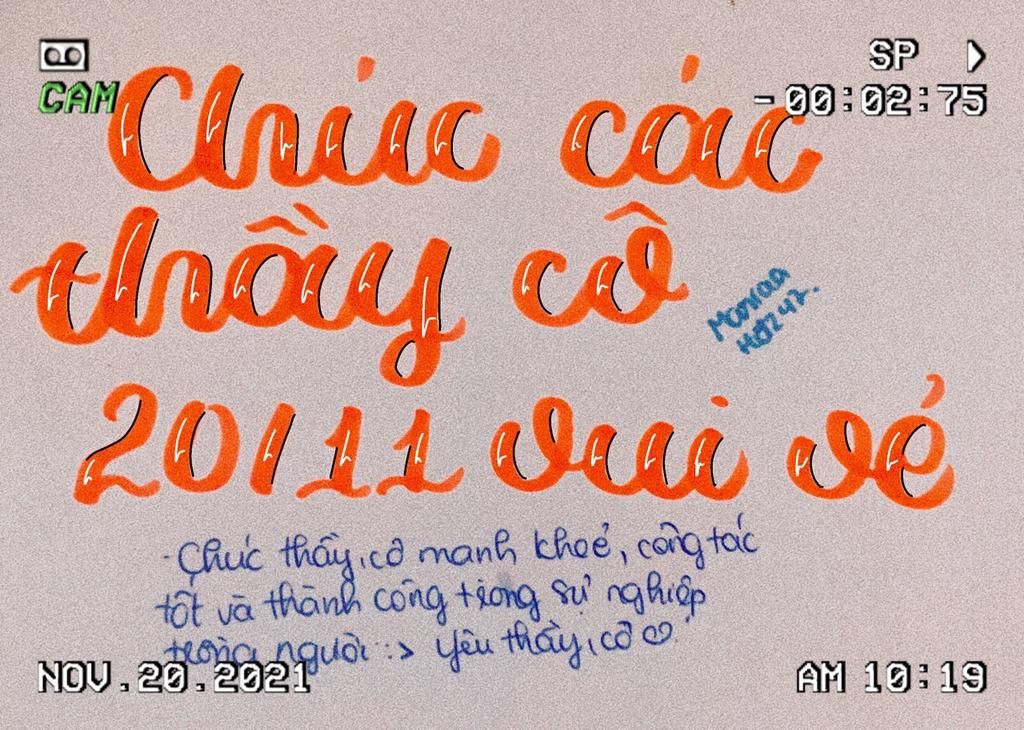 SP
CAM
-00:02:75
Chúc các
thầy cô
20/11 vui vẻ
- Chúc thầy, cô mạnh khoẻ, công tác
tốt và thành công trong sự nghiệp
trồng người :> yêu thầy, cô ♡
NOV.20.2021
AM 10:19